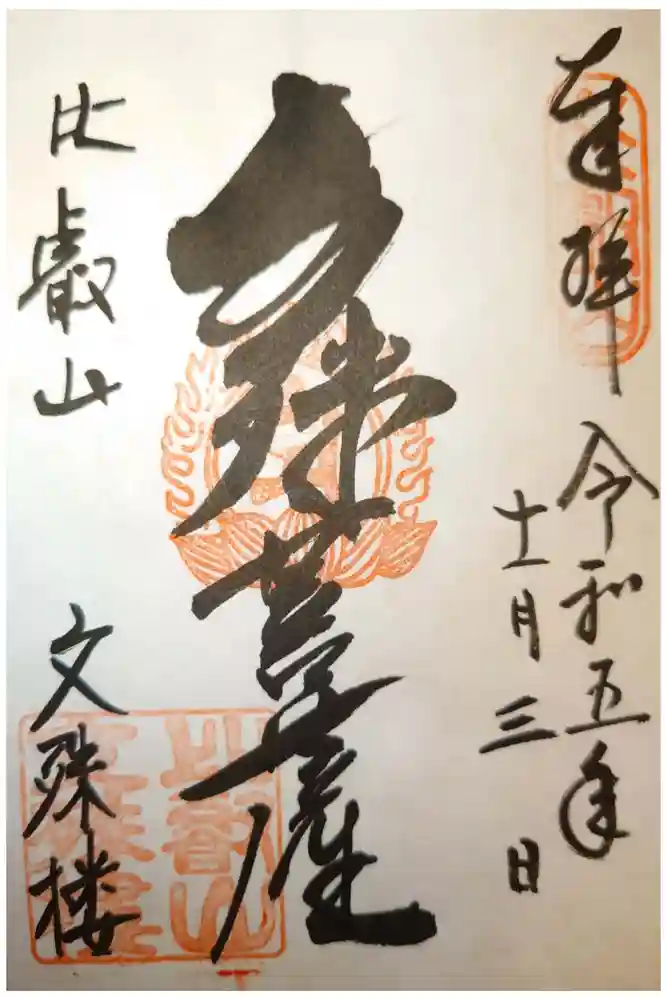 奉拝
令和五年
十一月三日
文殊菩薩
比叡山
文殊楼